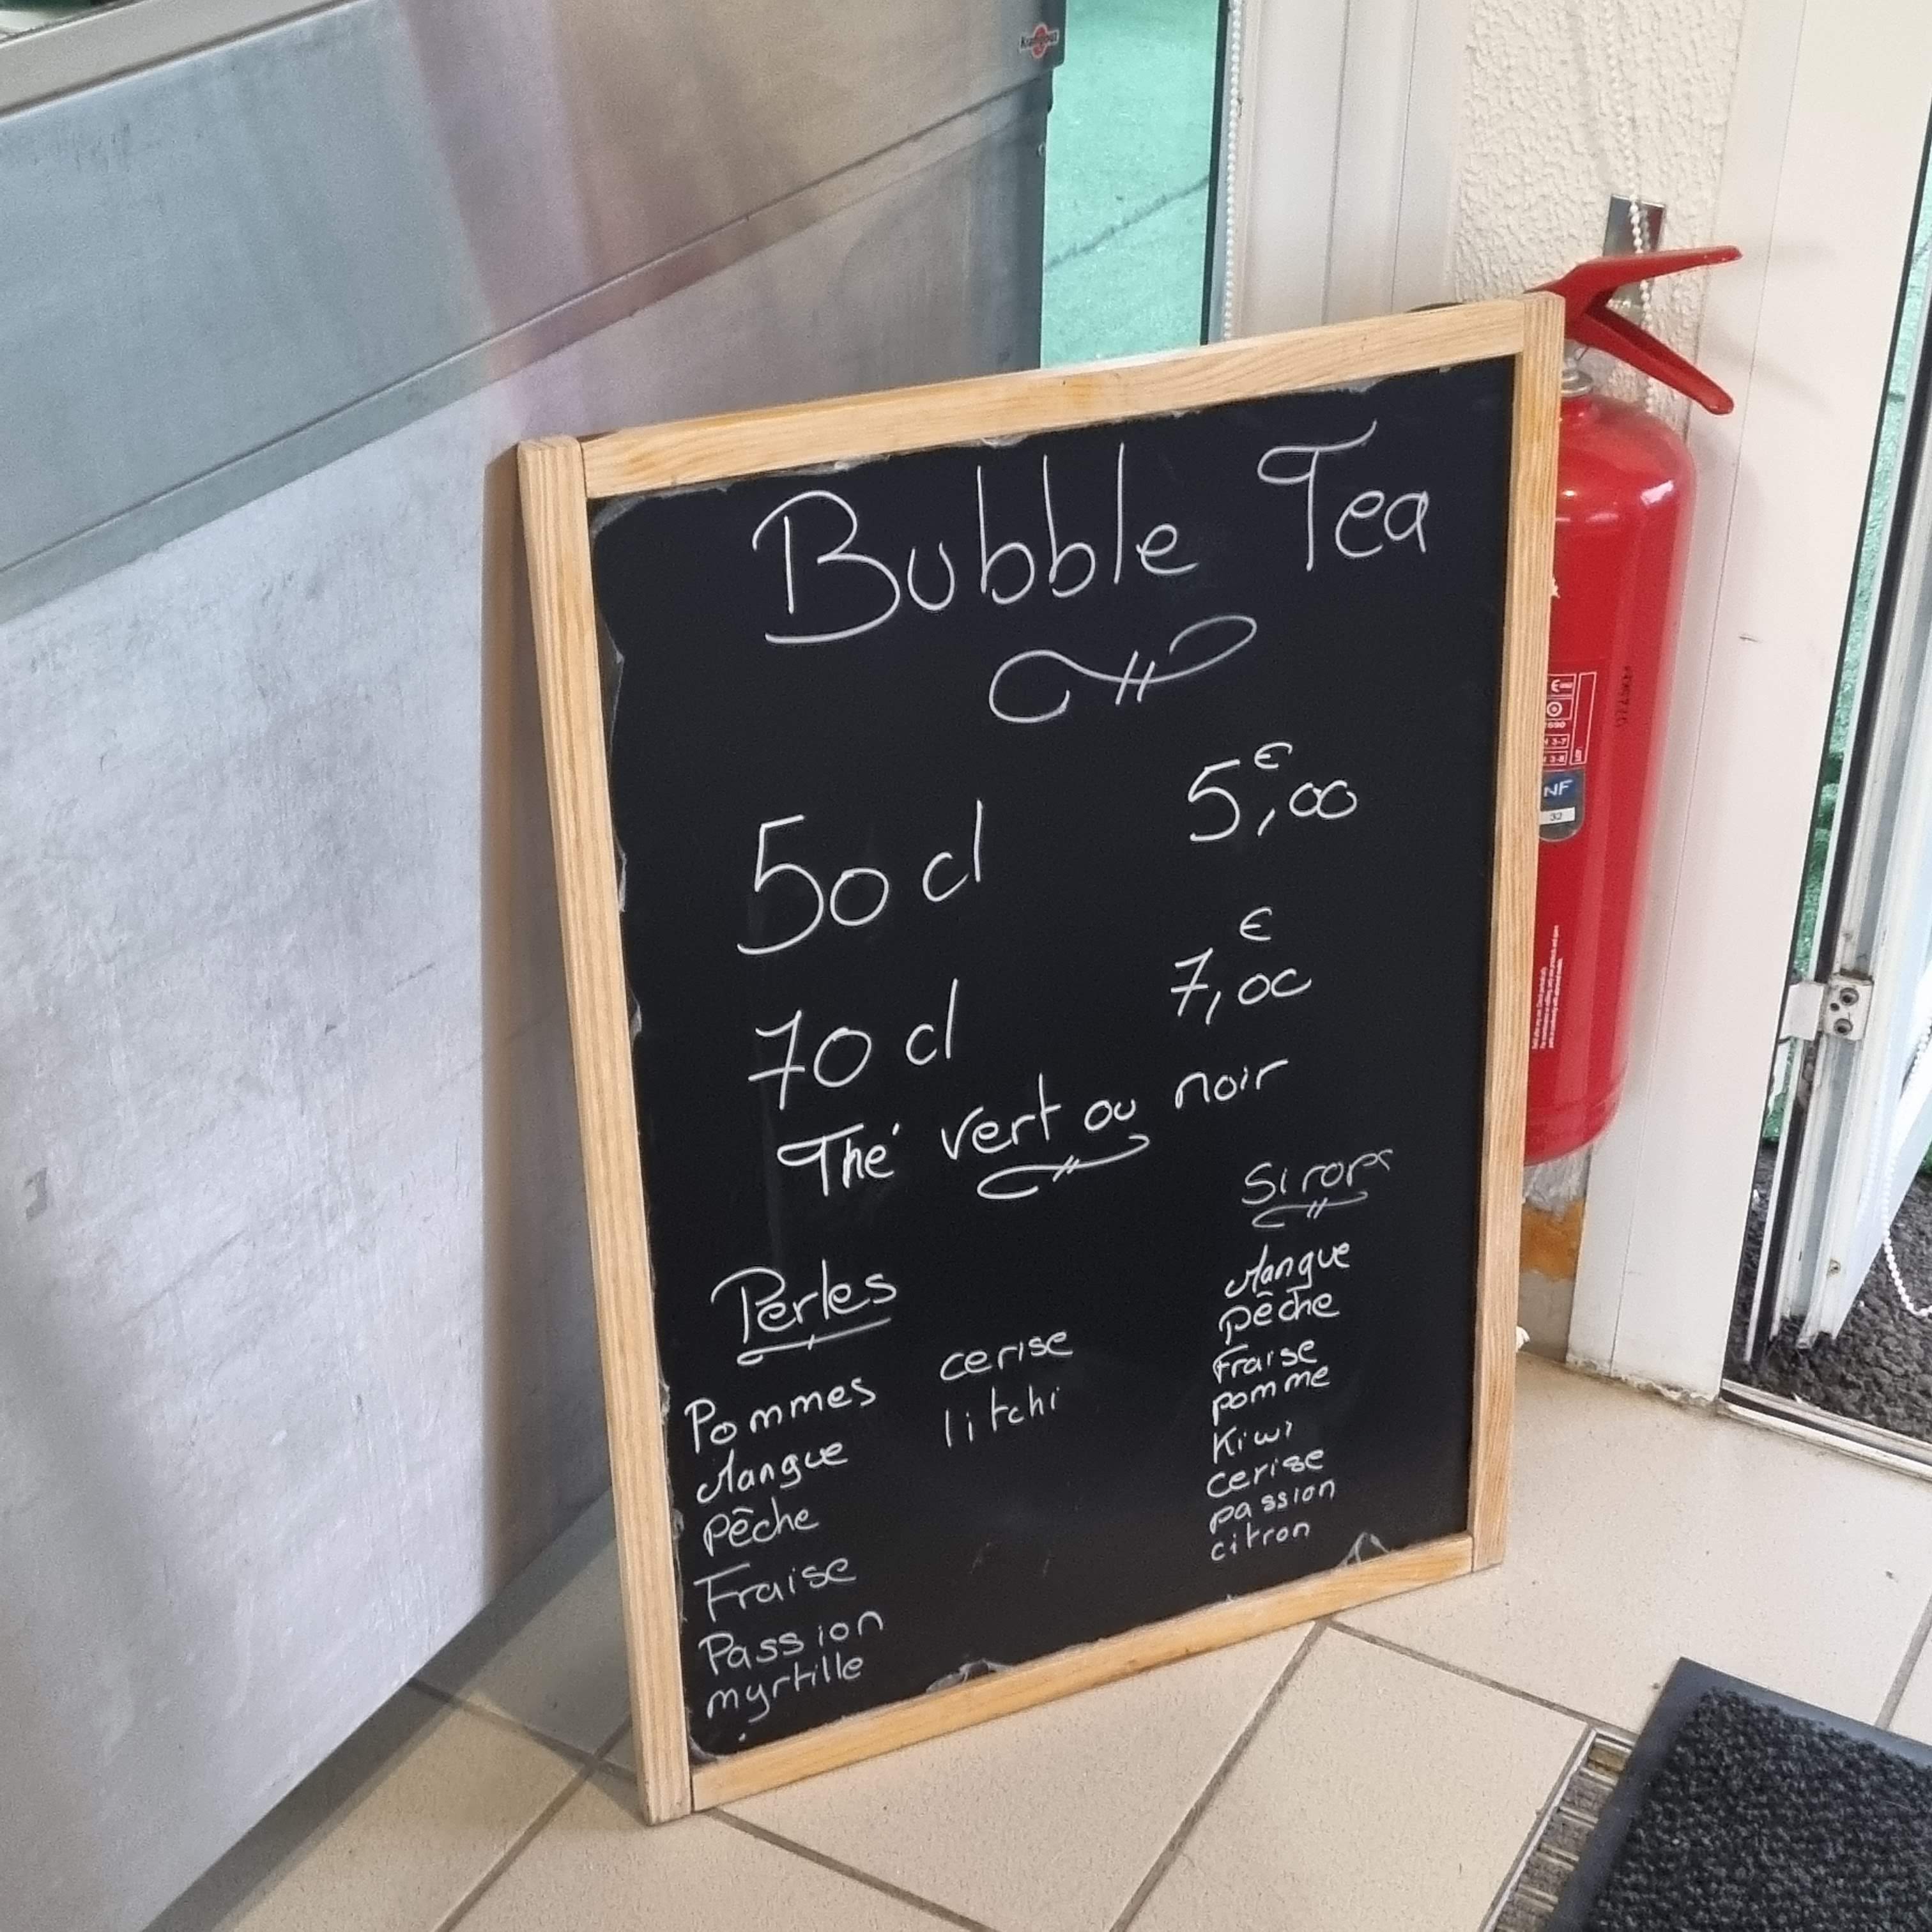 Bubble Tea
50 cl 5,00 €
70 cl 7,00 €
Thé vert ou noir
Perles
Pommes
Mangue
Pêche
Fraise
Passion
myrtille
cerise
litchi
Sirops
Mangue
pêche
Fraise
pomme
Kiwi
cerise
passion
citron
NF
32